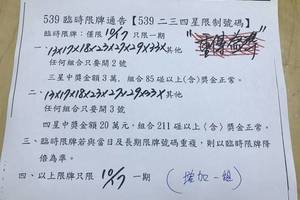 539 臨時限牌通告【539 二三四星限制號碼】
臨時限牌:僅限 10/7 只限一期
一、13×17×18×23×27×29×33×其他
任何組合只要開 2 號
三星中獎金額 3 萬,組合 85 碰以上(含)獎金正常。
二、13×17×18×23×27×29×33×其他
任何組合只要開 3 號
四星中獎金額 20 萬元,組合 211 碰以上〈含〉獎金正常。
三、臨時限牌若與當日及長期限牌號碼重複,則以臨時限牌降
倍為準。
四、以上限牌只限 10/7 一期 (增加一組)